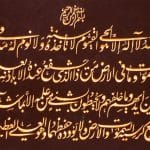 بسم الله الرحمن الرحيم
الله لا اله الا هو الحي القيوم لا تأخذه سنة ولا نوم له
وما في الارض من ذا الذي يشفع عنده الا باذنه
ايديهم وما خلفهم ولا يحيطون بشيء من علمه الا بما شاء
وسع كرسيه السموات والارض ولا يؤده حفظهما وهو العلي العظيم